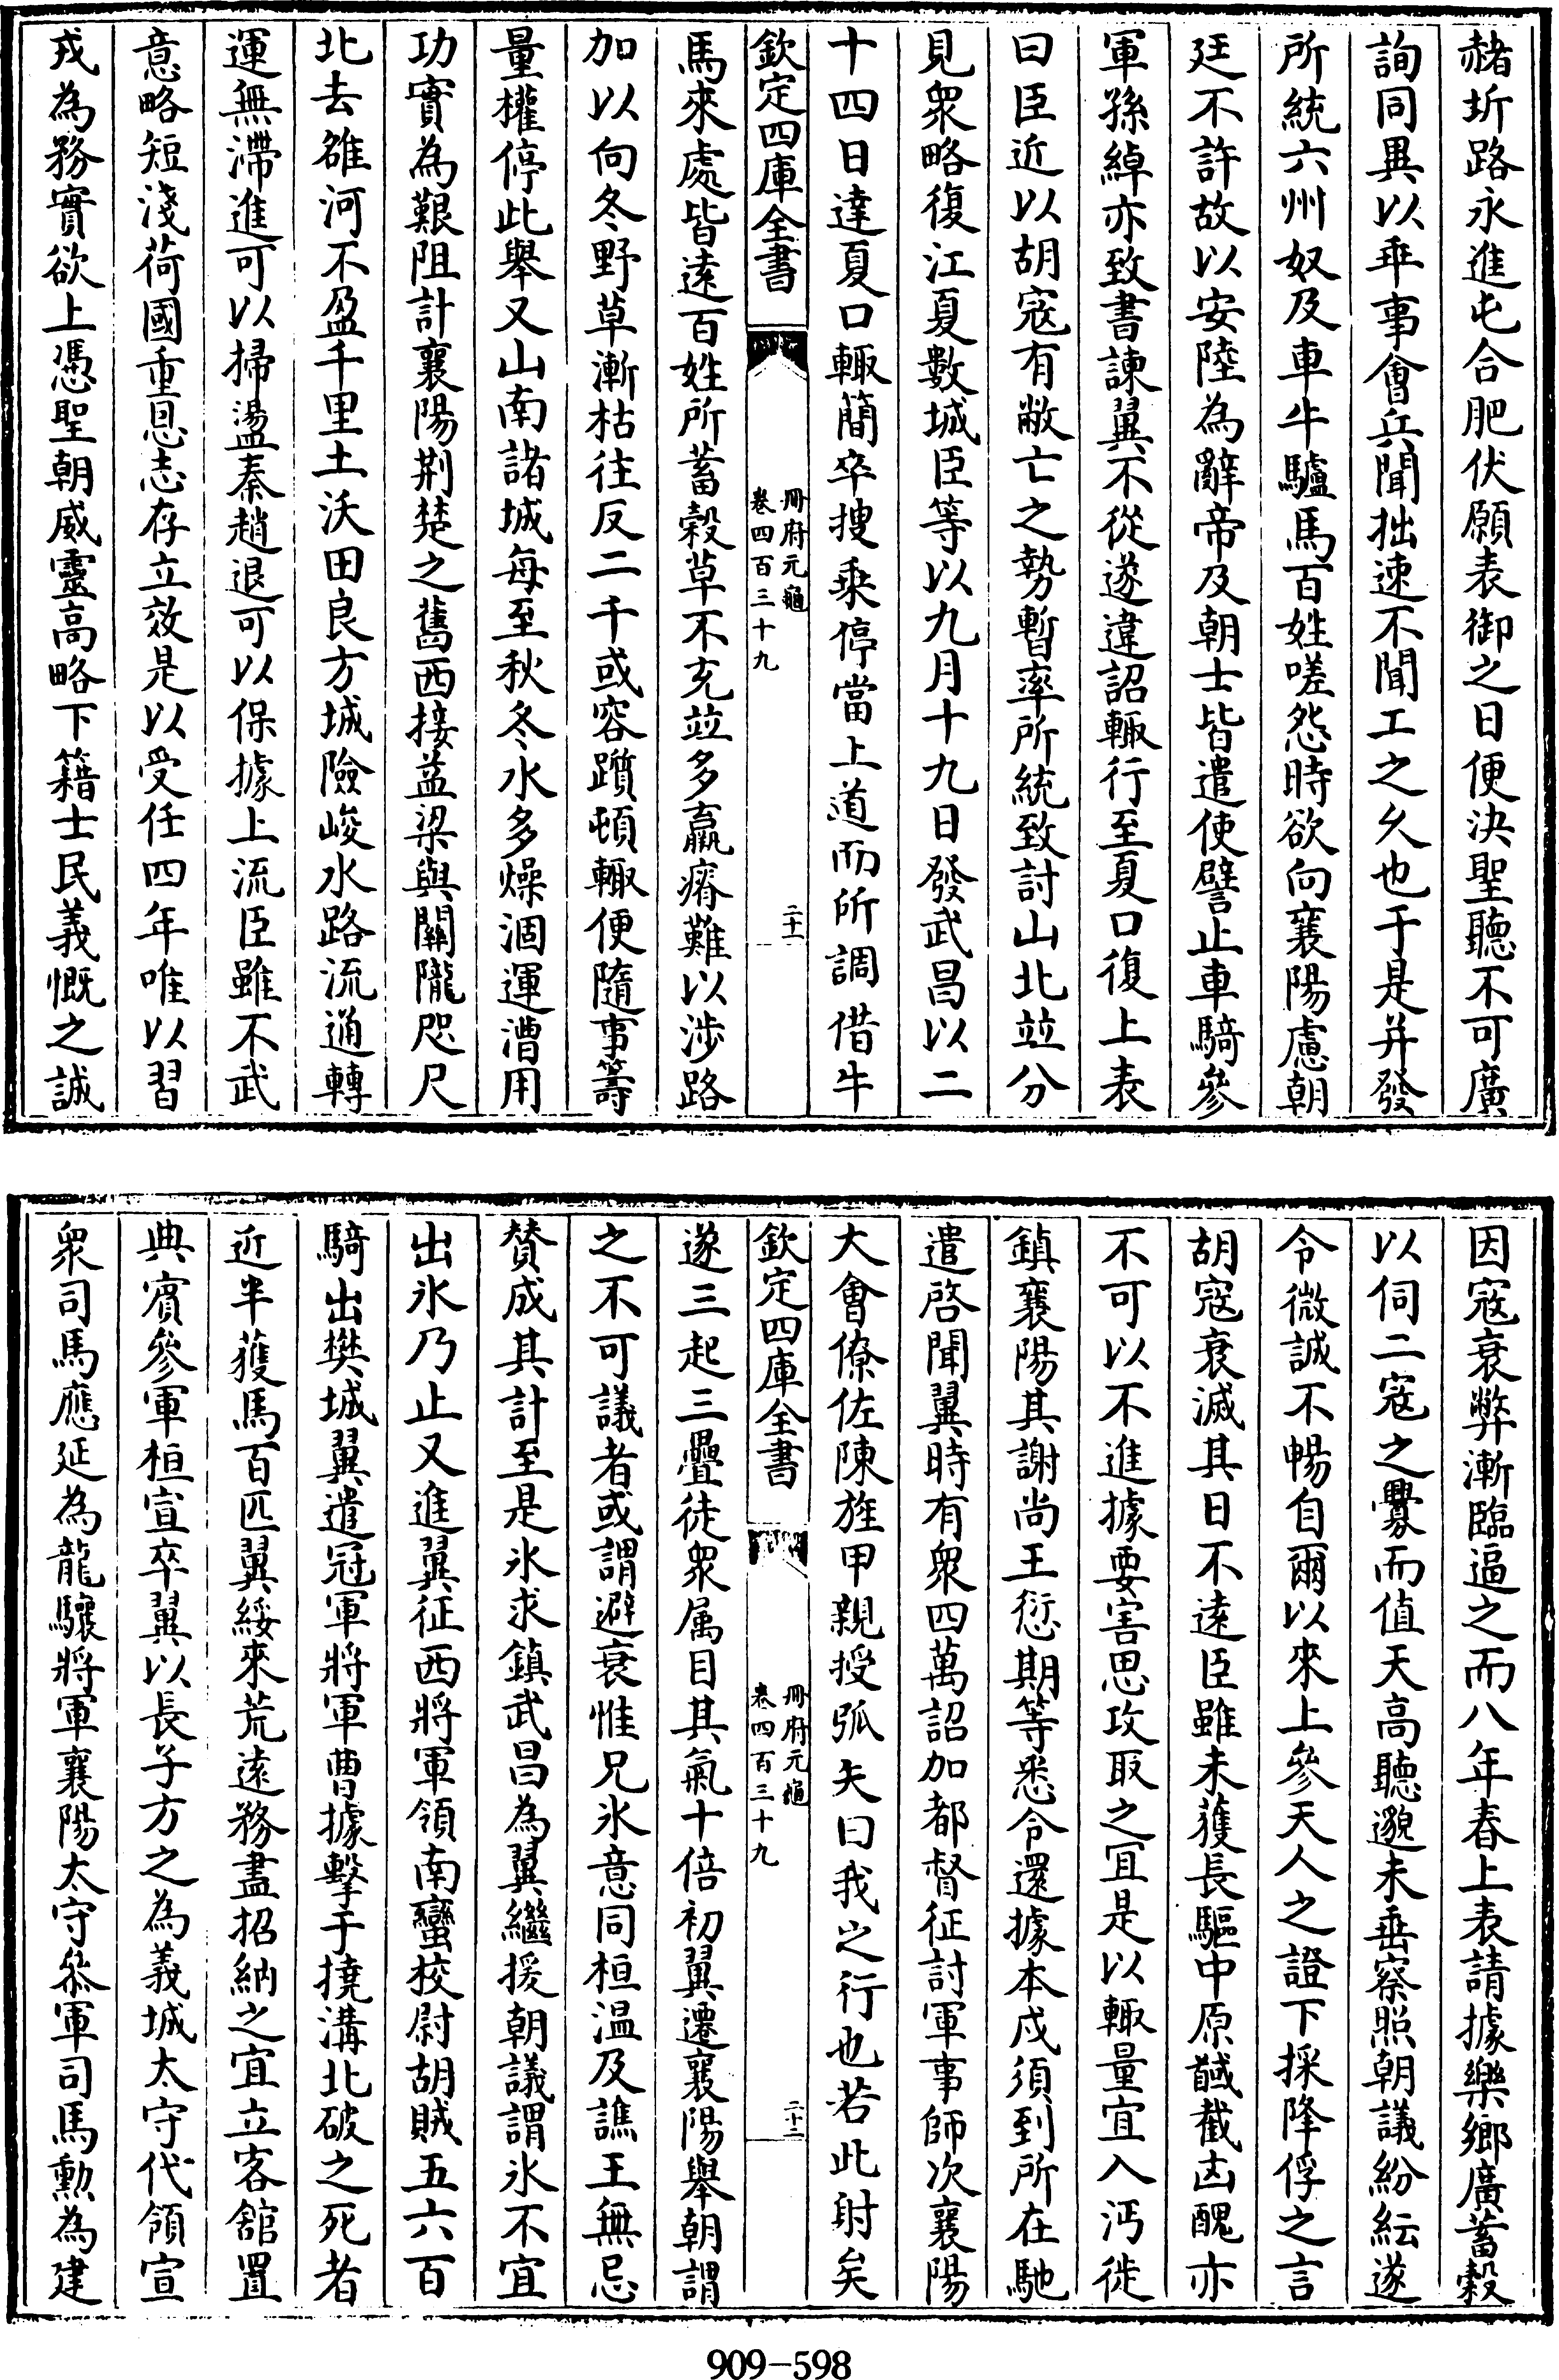 赭圻路永進屯合肥伏願表御之日便決聖聽不可廣
詢同異以乖事會兵聞拙速不聞工之久也于是并發
所統六州奴及車牛驢馬百姓嗟怨時欲向襄陽慮朝
廷不許故以安陸為辭帝及朝士皆遣使譬止車騎參
軍孫綽亦致書諫翼不從遂違詔輒行至夏口復上表
曰臣近以胡寇有敝亡之勢暫率所統致討山北並分
見衆略復江夏數城臣等以九月十九日發武昌以二
十四日達夏口輒簡卒搜乘停當上道而所調借牛
欽定四庫全書
冊府元龜
卷四百三十九
二十一
馬來處皆遠百姓所蓄穀草不充並多羸瘠難以涉路
加以向冬野草漸枯往反二千或容躓頓輒便隨事籌
量權停此舉又山南諸城每至秋冬水多燥涸運漕用
功實為艱阻計襄陽荆楚之舊西接益梁與關隴咫尺
北去雒河不盈千里土沃田良方城險峻水路流通轉
運無滯進可以掃盪秦趙退可以保據上流臣雖不武
意略短淺荷國重恩志存立效是以受任四年唯以習
戎為務實欲上憑聖朝威靈高略下籍士民義慨之誠
因寇衰弊漸臨逼之而八年春上表請據樂鄉廣蓄穀
以伺二寇之釁而值天高聽邈未垂察照朝議紛紜遂
令微誠不暢自爾以來上參天人之證下採降俘之言
胡寇衰滅其日不遠臣雖未獲長驅中原馘截凶醜亦
不可以不進據要害思攻取之冝是以輒量宜入沔徙
鎮襄陽其謝尚王愆期等悉令還據本戍須到所在馳
遣啓聞翼時有衆四萬詔加都督征討軍事師次襄陽
大會僚佐陳旌甲親授弧矢曰我之行也若此射矣
欽定四庫全書
冊府元龜
卷四百三十九
二十二
遂三起三疊徒衆属目其氣十倍初翼遷襄陽舉朝謂
之不可議者或謂避衰惟兄氷意同桓温及譙王無忌
賛成其計至是氷求鎮武昌為翼繼援朝議謂氷不宜
出氷乃止又進翼征西將軍領南蠻校尉胡賊五六百
騎出樊城翼遣冠軍將軍曹據擊于撓溝北破之死者
近半獲馬百匹翼綏來荒遠務盡招納之宜立客舘置
典賓參軍桓宣卒翼以長子方之為義城太守代領宣
衆司馬應延為龍驤將軍襄陽太守叅軍司馬勲為建
909-598